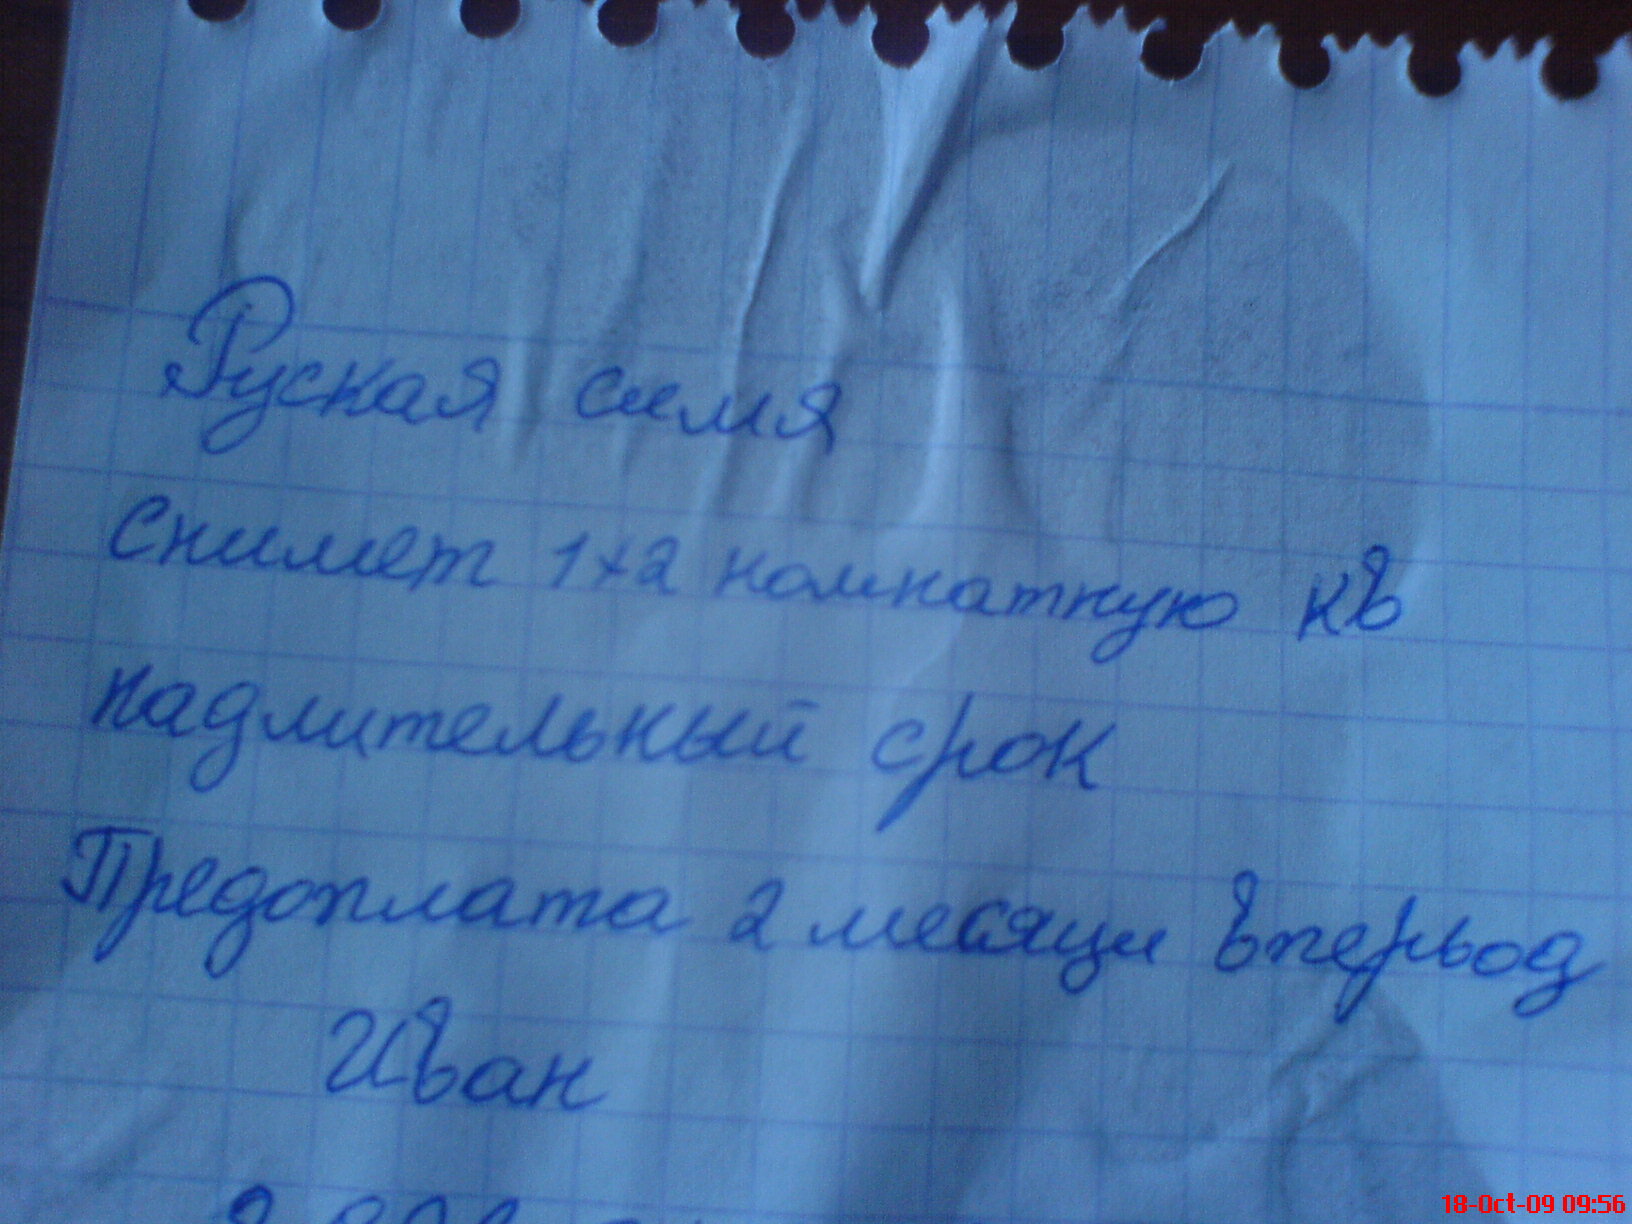 Руская симя
Снимет 1+2 комнатную кв
надлительный срок
Предоплата 2 месяци вперьод
Иван
18-Oct-09 09:56